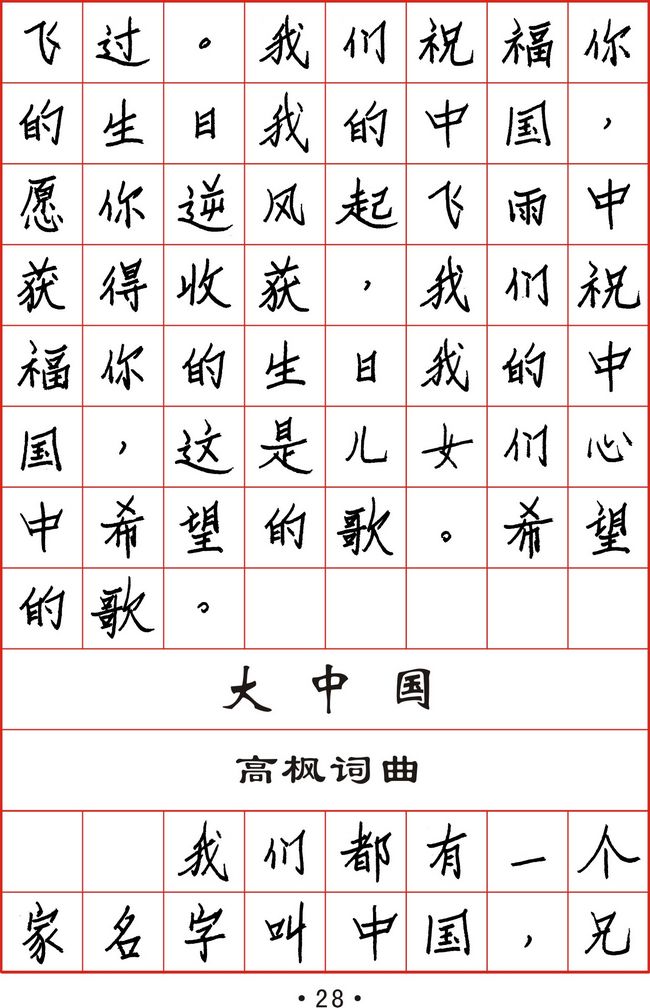 飞过。我们祝福你
的生日我的中国，
愿你逆风起飞雨中
获得收获，我们祝
福你的生日我的中
国，这是儿女们心
中希望的歌。希望
的歌。
大中国
高枫词曲
我们都有一个
家名字叫中国，兄
·28·